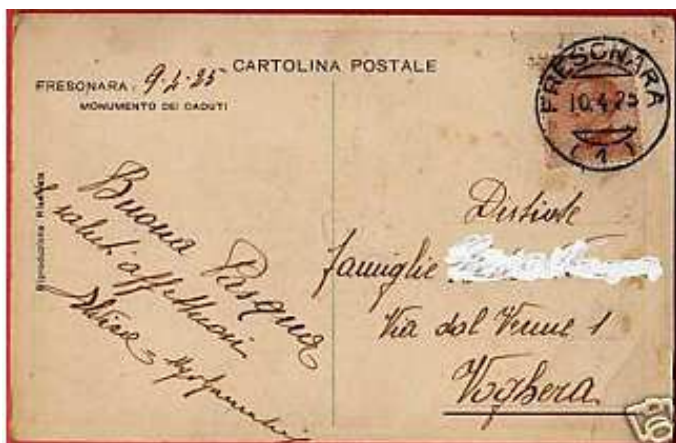 CARTOLINA POSTALE
FRESONARA, 9-4-25
MONUMENTO DEI CADUTI
FRESONARA
10.4.25
(1)
Riproduzione Riservata
Buona Pasqua
e saluti affettuosi
Distinte
famiglie
Via dal Verme 1
Voghera